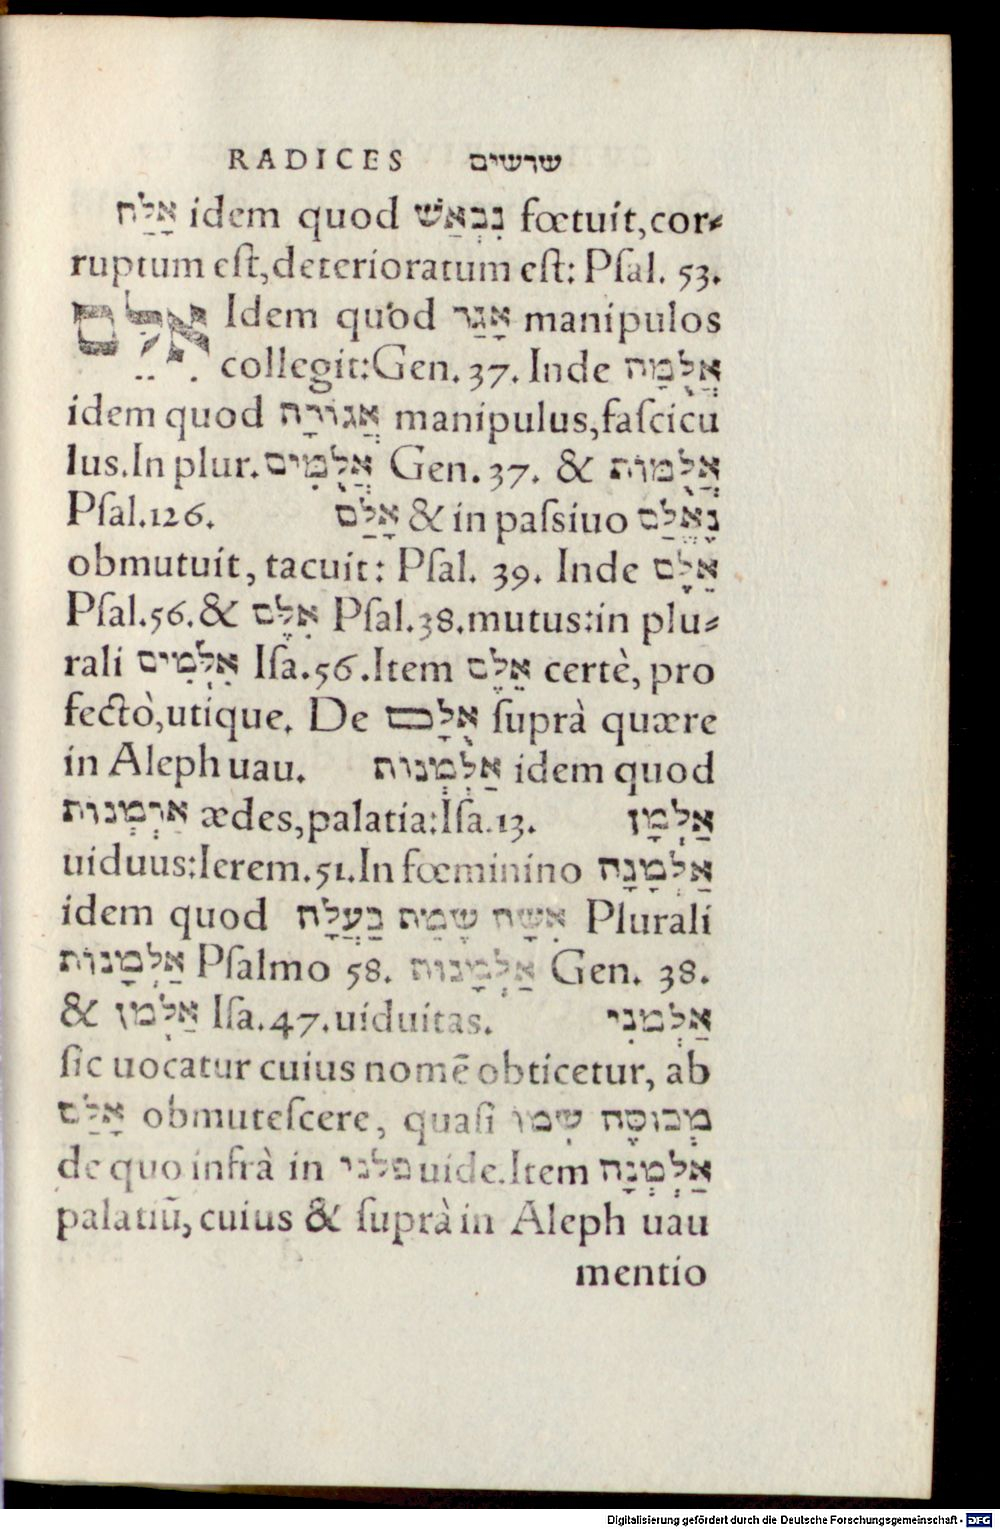 RADICES שרשים
אָלַח idem quod נִבְאַשׁ fœtuit, cor⸗
ruptum eſt, deterioratum eſt: Pſal. 53.
אָלַם Idem quod אָגַר manipulos
collegit: Gen. 37. Inde אֲלֻמָּה
idem quod אֲגוֹרָה manipulus, faſcicu
lus. In plur. אֲלֻמִּים Gen. 37. & אֲלֻמּוֹת
Pſal. 126. אָלַם & in paſsiuo נֶאֱלַם
obmutuit, tacuit: Pſal. 39. Inde אֵלֶם
Pſal. 56. & אִלֵּם Pſal. 38. mutus: in plu⸗
rali אִלְּמִים Iſa. 56. Item אֻלָם certè, pro
fectò, utique. De אֻלָם ſuprà quære
in Aleph uau. אַלְמְנוֹת idem quod
אַרְמְנוֹת ædes, palatia: Iſa. 13. אַלְמָן
uiduus: Ierem. 51. In fœminino אַלְמָנָה
idem quod אִשָּׁה שֶׁמֵּת בַּעֲלָהּ Plurali
אַלְמָנוֹת Pſalmo 58. אַלְמָנוּת Gen. 38.
& אַלְמֹן Iſa. 47. uiduitas. אַלְמֹנִי
ſic uocatur cuius nomē obticetur, ab
אָלַם obmuteſcere, quaſi מְכוּסֶה שְׁמוֹ
de quo infrà in פלני uide. Item אַלְמְנָה
palatiū, cuius & ſuprà in Aleph uau
mentio
Digitalisierung gefördert durch die Deutsche Forschungsgemeinschaft - DFG